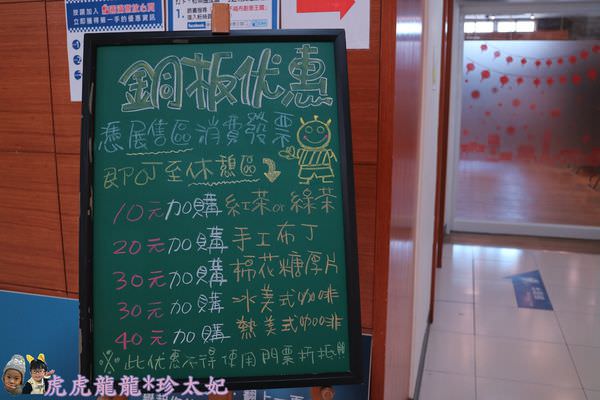 銅板优惠
憑展售區消費發票
即可至休憩區
10元加購紅茶or綠茶
20元加購手工布丁
30元加購棉花糖厚片
30元加購冰美式咖啡
40元加購熱美式咖啡
※此优惠不得使用門票折抵!!!
虎虎龍龍*珍太妃